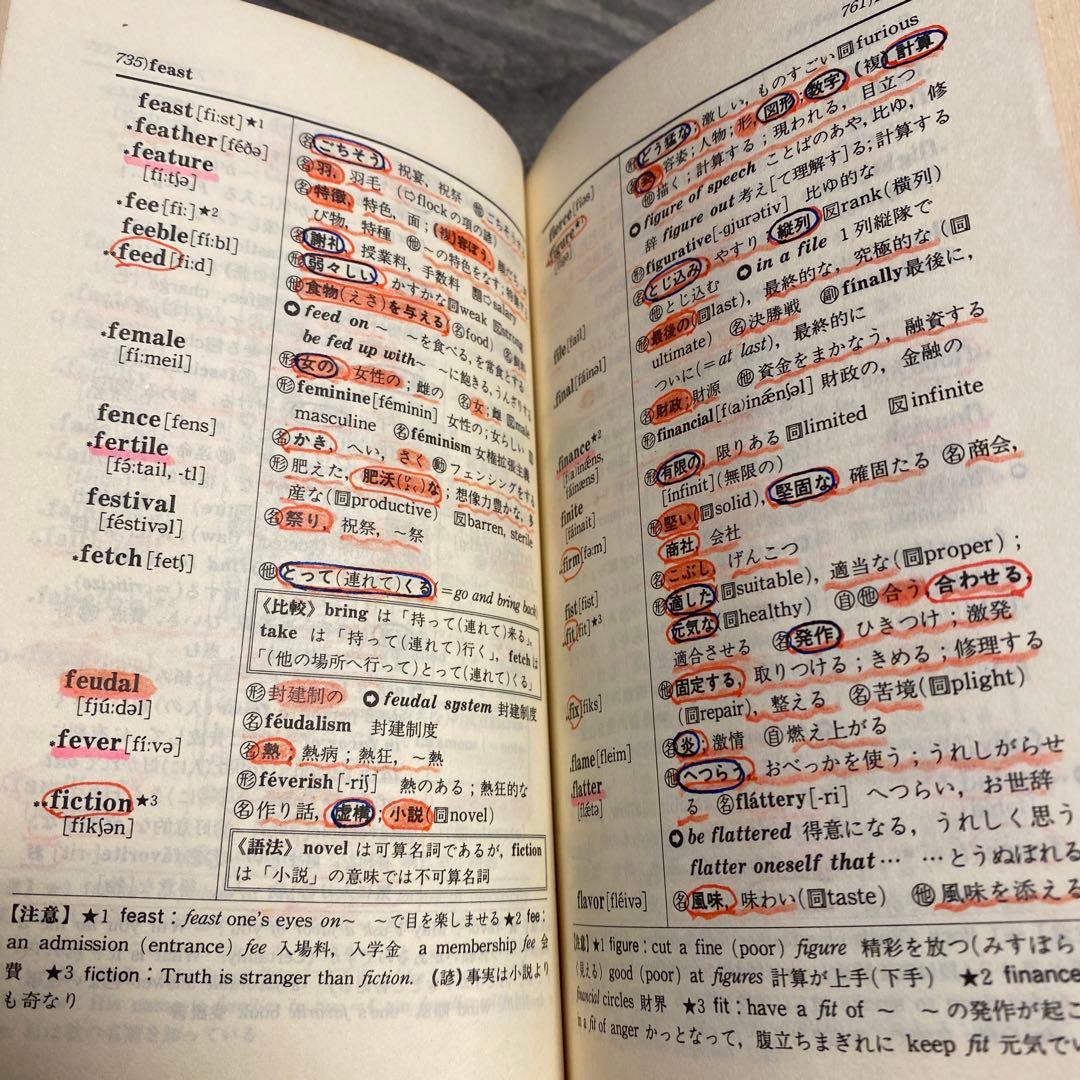 735)feast
feast[fi:st]★1
名ごちそう 祝宴, 祝祭
.feather[féðə]
名羽, 羽毛 (⇨flockの項の諺)
.feature
[fí:tʃə]
名特徴, 特色, 面;(複)容ぼう,
び物, 特種 他~の特色をなす;
.fee[fi:]★2
名謝礼 授業料, 手数料 ⇨salary
feeble[fí:bl]
形弱々しい かすかな同weak 反strong
.feed[fi:d]
他食物(えさ)を与える 名food)
feed on ~ ~を食べる,を常食とする
be fed up with~ ~に飽きる,うんざりする
.female
[fí:meil]
形女の 女性の;雌の 名女;雌 反male
形feminine[féminin] 女性の;女らしい 反
masculine 名féminism 女権拡張主義
fence[fens]
名かき, へい, さく 動フェンシングをする
.fertile
[fə́:tail, -tl]
形肥えた, 肥沃(ひよく)な;想像力豊かな, 多
産な(同productive) 反barren, sterile
festival
[féstivəl]
名祭り, 祝祭, ~祭
.fetch[fetʃ]
他とって(連れて)くる(=go and bring back)
《比較》bring は「持って(連れて)来る」,
take は「持って(連れて)行く」, fetchは
「(他の場所へ行って)とって(連れて)くる」
feudal
[fjú:dəl]
形封建制の feudal system 封建制度
名féudalism 封建制度
.fever[fí:və]
名熱;熱病;熱狂, ~熱
形féverish[-riʃ] 熱のある;熱狂的な
..fiction★3
[fíkʃən]
名作り話, 虚構;小説(同novel)
《語法》novel は可算名詞であるが, fiction
は「小説」の意味では不可算名詞
【注意】★1 feast : feast one's eyes on~ ~で目を楽しませる★2 fee :
an admission (entrance) fee 入場料, 入学金 a membership fee 会
費 ★3 fiction : Truth is stranger than fiction. (諺)事実は小説より
も奇なり
761)
fierce[fiəs]
形どう猛な;激しい, ものすごい同furious
figure★1
名姿;容姿;人物;形, 図形;数字 (複)計算
他描く;計算する;現われる, 目立つ
figure of speech ことばのあや, 比ゆ, 修
辞 figure out 考え[て理解す]る;計算する
形figurative[-gjurətiv] 比ゆ的な
file[fail]
名とじ込み やすり;縦列 反rank(横列)
他とじ込む in a file 1列縦隊で
.final[fáinəl]
形最後の(同last), 最終的な, 究極的な (同
ultimate) 名決勝戦 副finally最後に,
ついに(=at last), 最終的に
.finance★2
[f(a)inǽns,
fáinæns]
名財政;財源 他資金をまかなう, 融資する
形financial[f(a)inǽnʃəl]財政の, 金融の
finite
[fáinait]
形有限の 限りある 同limited 反infinite
[ínfinit](無限の)
.firm[fə:m]
形堅い(同solid), 堅固な 確固たる 名商会,
商社, 会社
fist[fist]
名こぶし, げんこつ
.fit[fit]★3
形適した(同suitable), 適当な(同proper);
元気な(同healthy) 自他合う, 合わせる,
適合させる 名発作 ひきつけ;激発
.fix[fiks]
他固定する, 取りつける;きめる;修理する
(同repair), 整える 名苦境(同plight)
.flame[fleim]
名炎;激情 自燃え上がる
.flatter
[flǽtə]
他へつらう, おべっかを使う;うれしがらせ
る 名fláttery[-ri] へつらい, お世辞
be flattered 得意になる, うれしく思う
flatter oneself that… …とうぬぼれる
flavor[fléivə]
名風味, 味わい(同taste) 他風味を添える
【注意】★1 figure : cut a fine (poor) figure 精彩を放つ(みすぼら
く見える) good (poor) at figures 計算が上手(下手) ★2 finance
financial circles 財界 ★3 fit : have a fit of ~ ~の発作が起こ
in a fit of anger かっとなって, 腹立ちまぎれに keep fit 元気でい